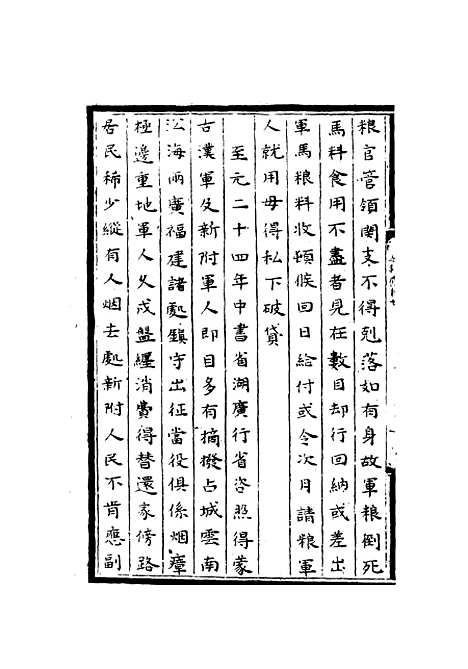 粮官管領関支不得剋落如有身故軍粮倒死
馬料食用不盡者見在數目却行回納或差出
軍馬粮料收頓候回日給付或令次月請粮軍
人就用毋得私下破貸
至元二十四年中書省湖廣行省咨照得蒙
古漢軍及新附軍人即目多有摘撥占城雲南
沿海兩廣福建諸處鎮守出征當役俱係烟瘴
極邊重地軍人久戍盤纒消費得替還家傍路
居民稀少縱有人烟去處新附人民不肯應副